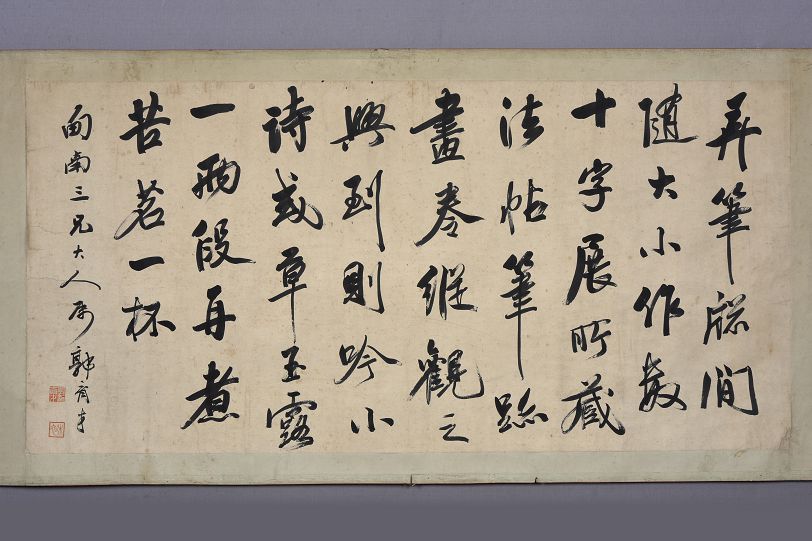 弄筆牕間
隨大小作數
十字展所藏
法帖筆跡
畫卷縱觀之
興到則吟小
詩或草玉露
一兩段再煮
苦茗一杯
南三兄大人屬 郭